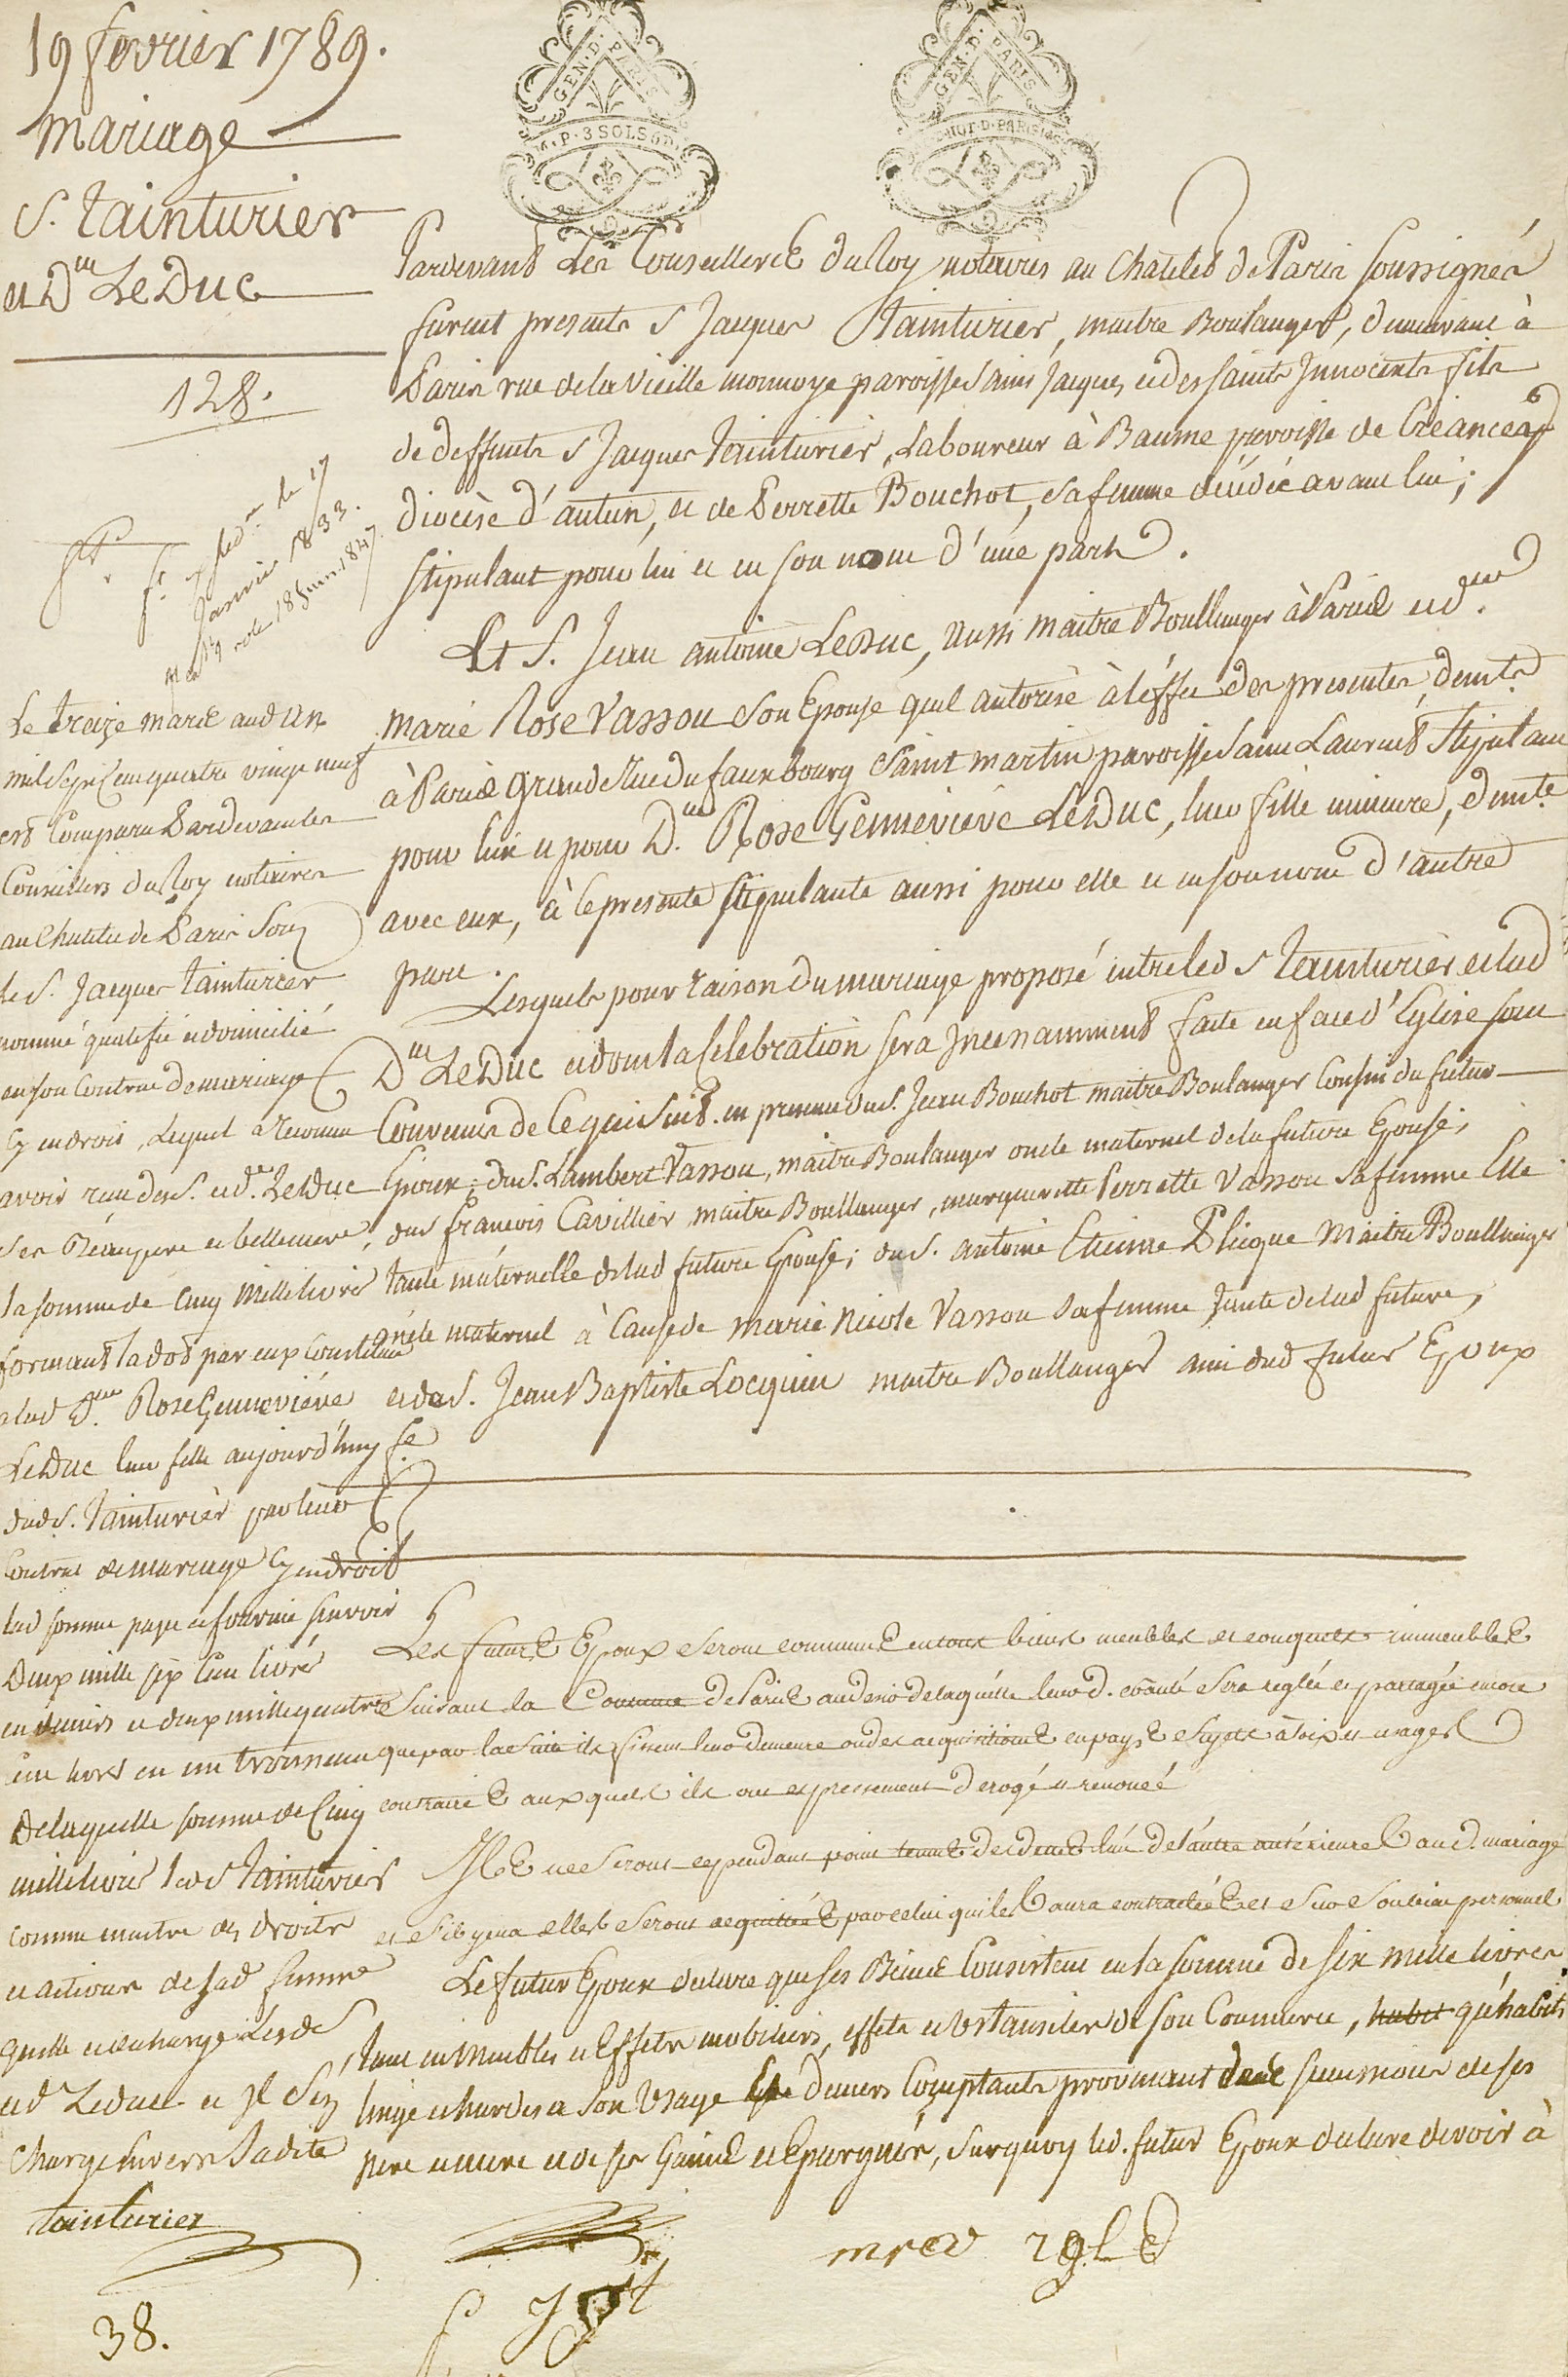 19 fevrier 1789.
Mariage
S. Tainturier
et Dlle LeDuc
128.
GEN. D. PARIS
M. P. 3 SOLS 6 D.
GEN. D. PARIS
Janvier 1833.
18 Juin 1847
Pardevant Les Conseillers du Roy notaires au Chatelet de Paris soussignés
furent presents S Jacques Tainturier, maitre Boulanger, demeurant à
Paris rue de la vieille monnoye paroisse saint Jacques et des saints Innocents fils
de deffunts S Jacques Tainturier, Laboureur à Baume paroisse de Créancey
diocèse d'autun, et de Perrette Bouchot, sa femme décédée avant lui;
stipulant pour lui et en son nom d'une part.
Et S. Jean antoine LeDuc, aussi maitre Boullanger à Paris et de
marie Rose Vassou son Epouse qu'il autorise à l'effet des presentes, demts
à Paris grande Rue du fauxbourg saint martin paroisse saint Laurent Stipulant
pour lui et pour Dlle Rose Genneviève LeDuc, leur fille mineure, demte
avec eux, à ce presente stipulante aussi pour elle et en son nom d'autre
part.
Lesquels pour raison du mariage proposé entre led S Tainturier et lad
Dlle LeDuc et dont la Celebration sera Incessamment faite en face d'Eglise sont
Convenus de Ce qui suit. en presence du S. Jean Bouchot maitre Boulanger Cousin du futur
Epoux; du S. Lambert Vassou, maitre Boulanger oncle maternel de la future Epouse;
du S françois Cavillier maitre Boullanger, margueritte Perrette Vassou sa femme Elle
tante maternelle de lad future Epouse; du S. antoine Etienne Plicque Maitre Boullanger
oncle maternel à Cause de marie Nicole Vassou sa femme, tante de lad future,
et du S. Jean Baptiste Locquin maitre Boullanger ami dud futur Epoux
Les futurs Epoux seront communs en tous biens meubles et conquets immeubles
suivant la Coutume de Paris au desir de laquelle leur d. cōauté sera reglée et partagée encore
que par la suite ils fissent leur demeure ou des acquisitions en pays sujets à loix et usages
contraires auxquels ils ont expressement derogé et renoncé
Ils ne seront cependant point tenus des dettes l'un de l'autre antérieures au d. mariage
et s'il y en a elles seront acquittées par celui qui les aura contractées et sur son bien personnel
Le futur Epoux declare que ses Biens Consistent en la somme de six mille livres
tant en Meubles et Effets mobiliers, effets et Ustanciles de son Commerce, habit qu'habits
linge et hardes à son Usage deniers Comptants provenant de successions de ses
pere et mere et de ses Gains et Epargnes, sur quoy led. futur Epoux declare devoir à
Le treize mars aud an
mil sept Cent quatre vingt neuf
est Comparu Pardevant les
Conseillers du Roy notaires
au Chatelet de Paris Souz
le S. Jacques Tainturier
nommé qualifié et domicilié
en son Contrat de mariage
Cy endroit, Lequel a reconnu
avoir reçu du S. et de. LeDuc
ses Beaupere et bellemere,
la somme de Cinq Mille livres
formant la dot par eux Constituée
à lad Dlle. Rose Genneviéve
LeDuc leur fille aujourd'huy fe
dud S. Tainturier par leur
Contrat de mariage Cy endroit
lad somme payée et fournie savoir
Deux mille six Cent livres
en deniers et deux mille quatre
Cent livres en un trousseau
De laquelle somme de Cinq
mille livres led S Tainturier
comme maitre des droits
et actions de sad femme
quitte et decharge lesd S
et de Leduc
Charge envers ladite
tainturier
38.